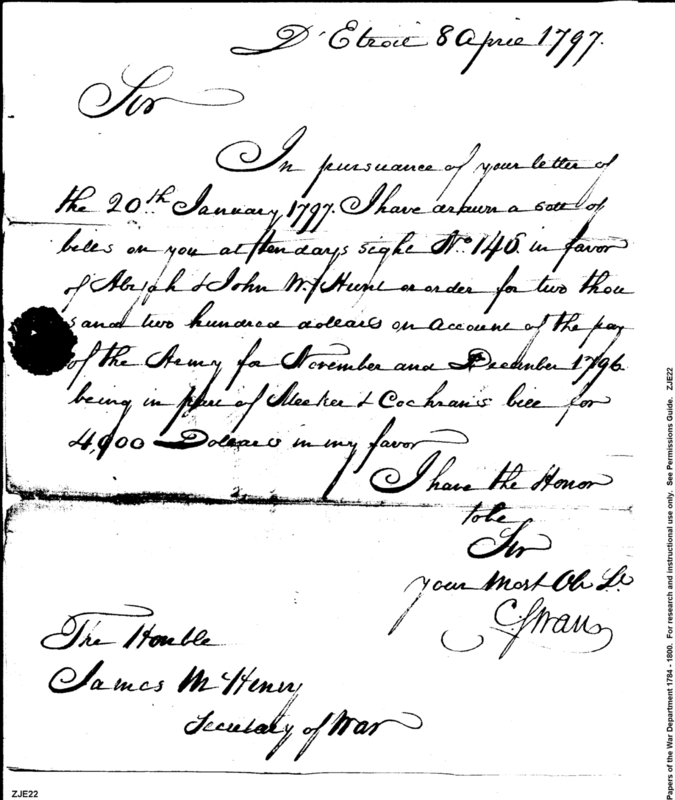 D'Etroit 8 April 1797.
Sir
In pursuance of your letter of
the 20th January 1797. I have drawn a sett of
bills on you at ten days sight No. 146. in favor
of Abijah & John W. Hunt or order for two thou
sand two hundred dollars on account of the pay
of the Army for November and December 1796
being in part of Meeker & Cochran's bill for
4,900 Dollars in my favor
I have the Honor
to be
Sir
your Most Ob St.
C Swan
The Honble
James McHenry
Secretary of War
ZJE22
Papers of the War Department 1784 - 1800. For research and instructional use only. See Permissions Guide. ZJE22